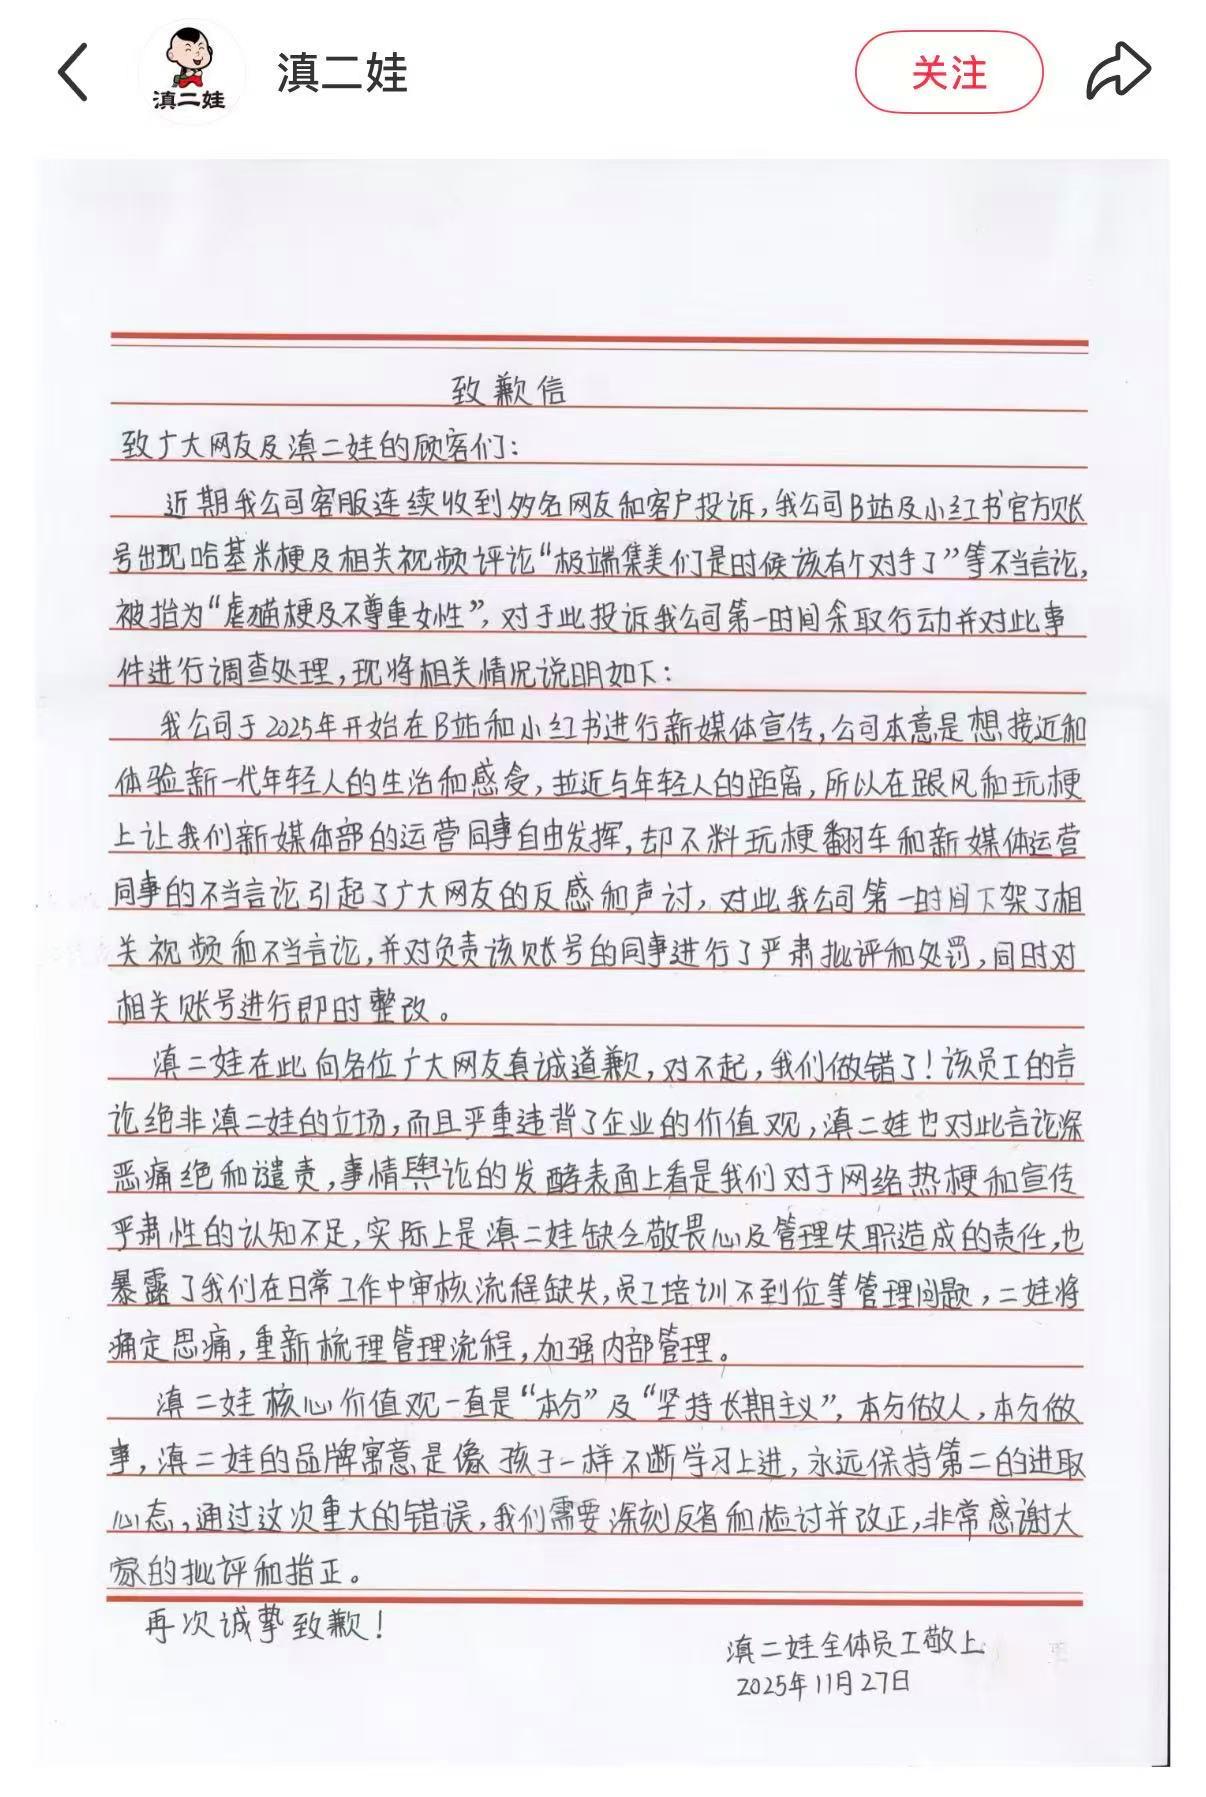 滇二娃
滇二娃
关注
致歉信
致广大网友及滇二娃的顾客们：
近期我公司客服连续收到多名网友和客户投诉，我公司B站及小红书官方账
号出现哈基米梗及相关视频评论“极端集美们是时候该有个对手了”等不当言论，
被指为“虐猫梗及不尊重女性”，对于此投诉我公司第一时间采取行动并对此事
件进行调查处理，现将相关情况说明如下：
我公司于2025年开始在B站和小红书进行新媒体宣传，公司本意是想接近和
体验新一代年轻人的生活和感受，拉近与年轻人的距离，所以在跟风和玩梗
上让我们新媒体部的运营同事自由发挥，却不料玩梗翻车和新媒体运营
同事的不当言论引起了广大网友的反感和声讨，对此我公司第一时间下架了相
关视频和不当言论，并对负责该账号的同事进行了严肃批评和处罚，同时对
相关账号进行即时整改。
滇二娃在此向各位广大网友真诚道歉，对不起，我们做错了！该员工的言
论绝非滇二娃的立场，而且严重违背了企业的价值观，滇二娃也对此言论深
恶痛绝和谴责，事情舆论的发酵表面上看是我们对于网络热梗和宣传
严肃性的认知不足，实际上是滇二娃缺乏敬畏心及管理失职造成的责任，也
暴露了我们在日常工作中审核流程缺失，员工培训不到位等管理问题，二娃将
痛定思痛，重新梳理管理流程，加强内部管理。
滇二娃核心价值观一直是“本分”及“坚持长期主义”，本分做人，本分做
事，滇二娃的品牌寓意是像孩子一样不断学习上进，永远保持第二的进取
心态，通过这次重大的错误，我们需要深刻反省和检讨并改正，非常感谢大
家的批评和指正。
再次诚挚致歉！
滇二娃全体员工敬上
2025年11月27日